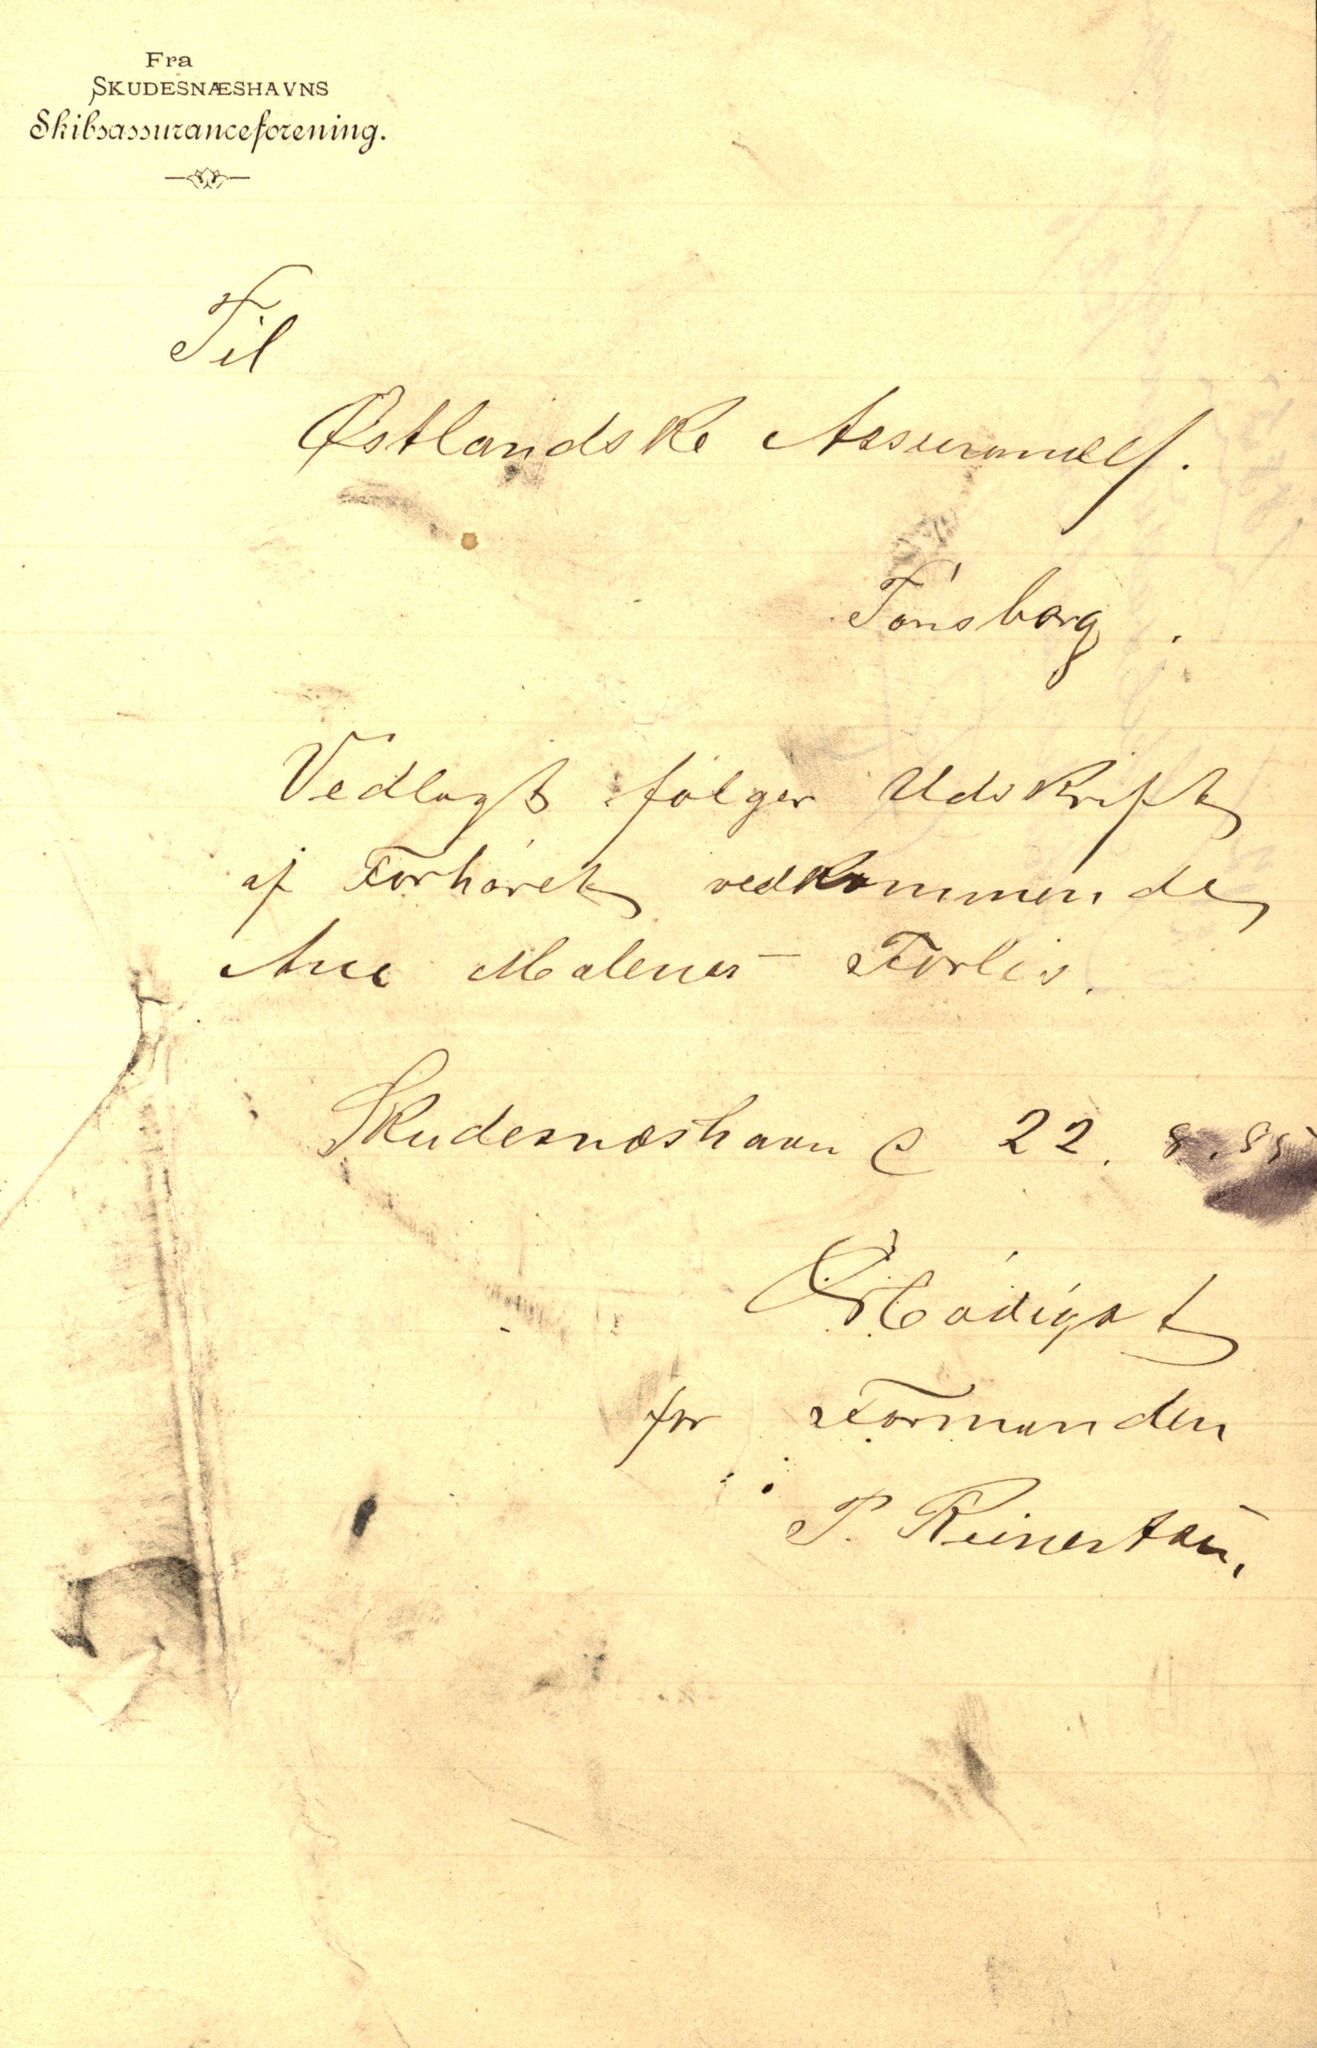 Fra
SKUDESNÆSHAVNS
Skibsassuranceforening.
Til
Østlandske Assurancef.
Tönsberg.
Vedlagt følger Udskrift
af Forhöret vedkommende
Ane Malenes Forlis.
Skudesneshavn 22. 8. 85
Ærbödigst
for Formanden
P. Reinertsen.